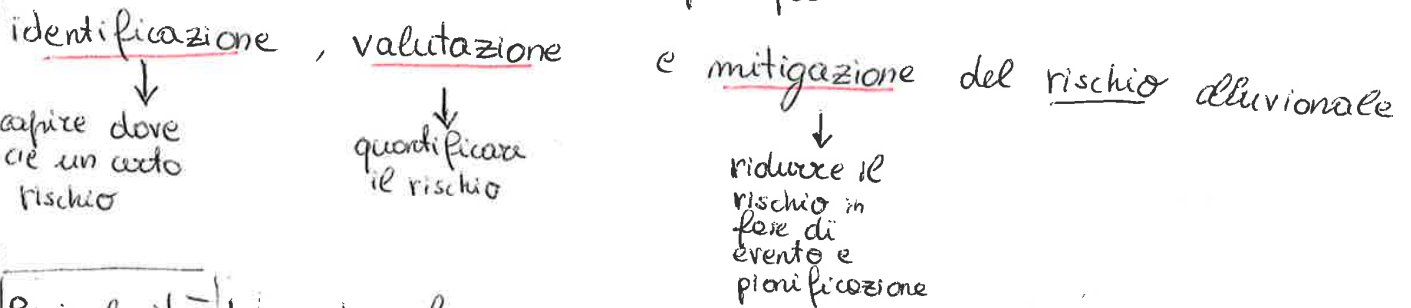 identificazione , valutazione e mitigazione del rischio alluvionale
capire dove
c'è un certo
rischio
quantificare
il rischio
ridurre il
rischio in
fase di
evento e
pianificazione